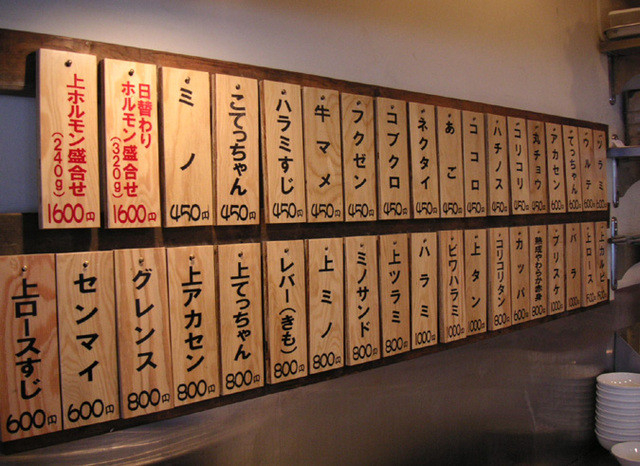 上ホルモン盛合せ
(240g)
1600円
日替わり
ホルモン盛合せ
(320g)
1600円
ミノ
450円
こてっちゃん
450円
ハラミすじ
450円
牛マメ
450円
フクゼン
450円
コブクロ
450円
ネクタイ
450円
あご
450円
ココロ
450円
ハチノス
450円
コリコリ
450円
丸チョウ
450円
アカセン
600円
てっちゃん
600円
ウルテ
600円
ツラミ
600円
上ロースすじ
600円
センマイ
600円
グレンス
800円
上アカセン
800円
上てっちゃん
800円
レバー(きも)
800円
上ミノ
800円
ミノサンド
800円
上ツラミ
800円
ハラミ
1000円
ビワハラミ
1000円
上タン
1000円
コリコリタン
800円
カッパ
600円
熟成やわらか赤身
800円
ブリスケ
1000円
バラ
1000円
上ロース